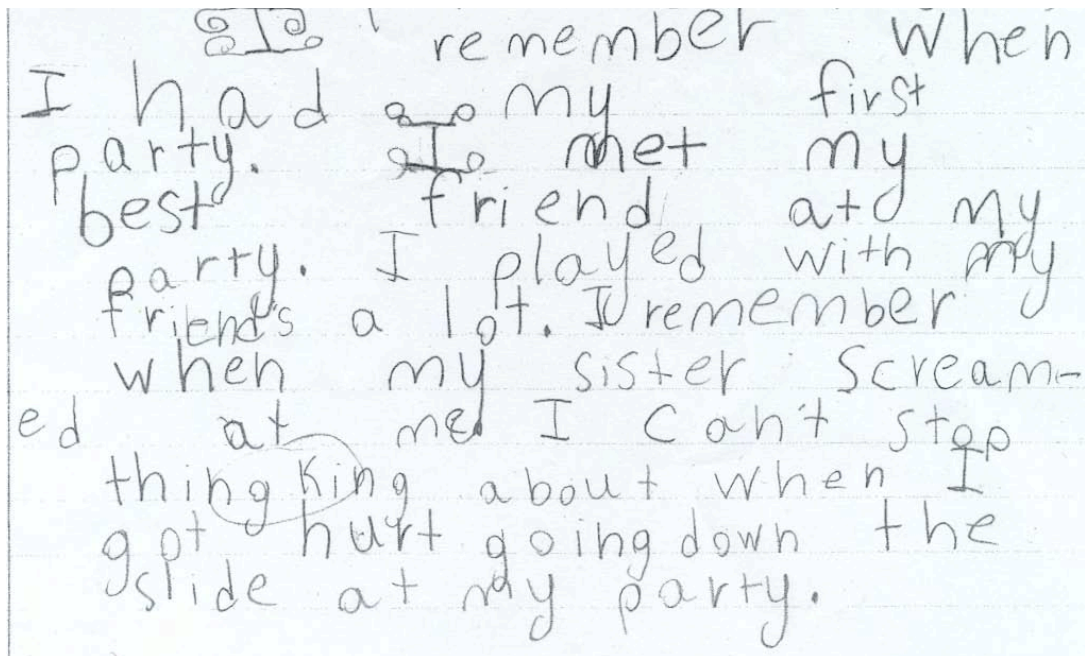 I remember when
I had my first
party. I met my
best friend at my
party. I played with my
friends a lot. I remember
when my sister scream-
ed at me I can't stop
thingking about when I
got hurt going down the
slide at my party.